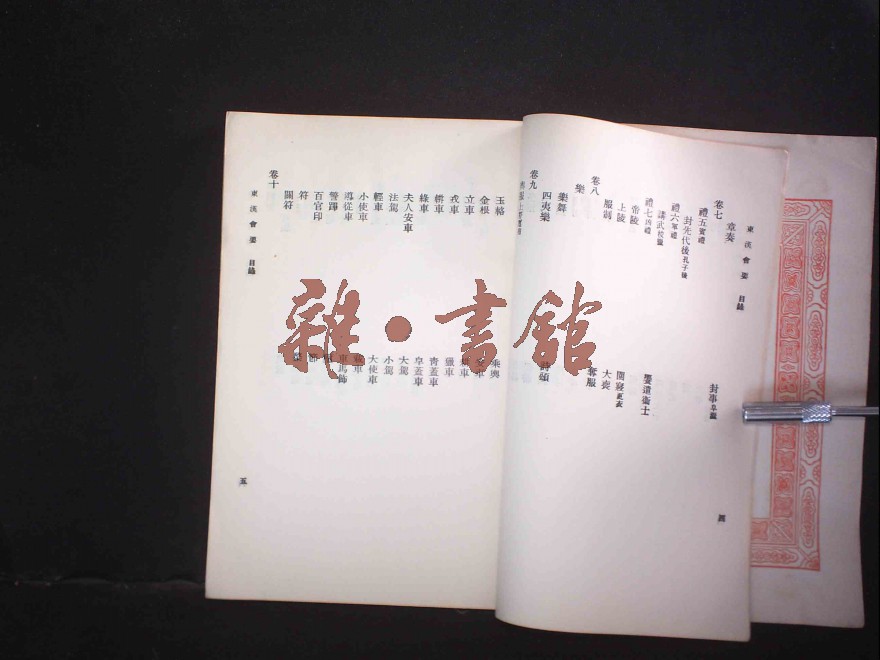 東漢會要 目錄
章奏
封事 阜囊
卷七
禮五 賓禮
封先代後 孔子後
饗遣衛士
禮六 軍禮
講武 校獵
禮七 凶禮
帝陵
上陵
大喪
服制
奪服
卷八
樂
樂舞
四夷樂
卷九
四
玉輅
乘輿
金根
立車
戎車
獵車
軿車
綠車
青蓋車
夫人安車
皁蓋車
法駕
大駕
輕車
小駕
小使車
大使車
導從車
車馬飾
警蹕
百官印
符
節
關符
卷十
東漢會要 目錄
五
雜·書館